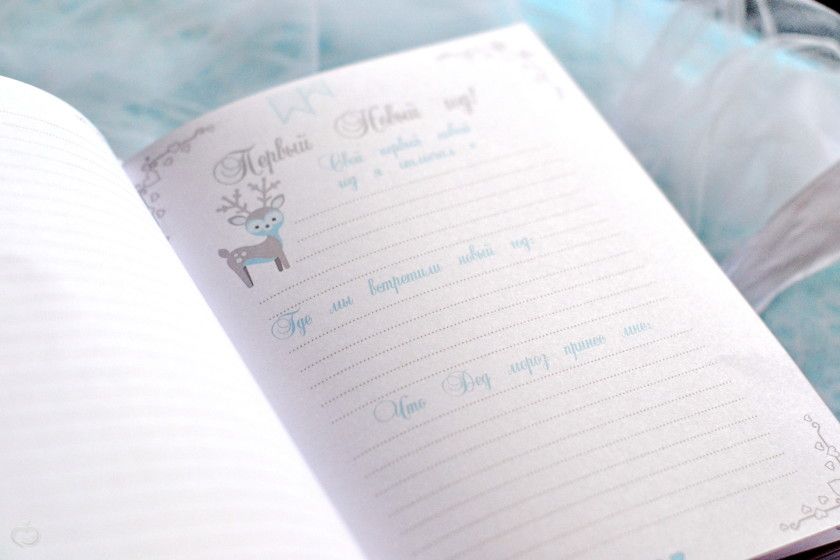 Первый Новый год!
Свой первый новый
год я отметил в
Где мы встретили новый год:
Что Дед мороз принес мне: